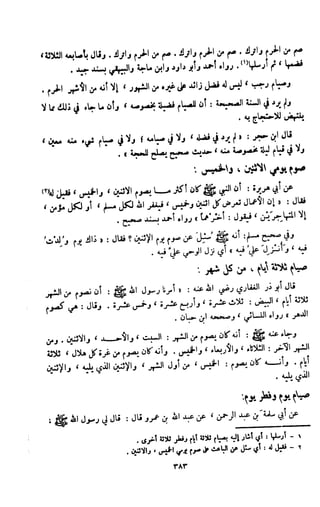 صم من الحرم واترك . صم من الحرم واترك . صم من الحرم واترك . وقال بأصابعه الثلاثة ،
فضمها ، ثم أرسلها(١) . رواه أحمد وأبو داود وابن ماجة والبيهقي بسند جيد .
وصيام رجب ، ليس له فضل زائد على غيره من الشهور ، إلا أنه من الأشهر الحرم .
ولم يرد في السنة الصحيحة : أن للصيام فضيلة بخصوصه ، وأن ما جاء في ذلك مما لا
ينتهض للاحتجاج به .
قال ابن حجر : « لم يرد في فضله ، ولا في صيامه ؛ ولا في صيام شيء منه معين ،
ولا في قيام ليلة مخصوصة منه ، حديث صحيح يصلح للحجة » .
صوم يومي الاثنين ، والخميس :
عن أبي هريرة : أن النبي ﷺ كان أكثر ما يصوم الاثنين ، والخميس ، فقيل له(٢)
فقال : « إن الأعمال تعرض كل اثنين وخميس ، فيغفر الله لكل مسلم ، أو لكل مؤمن ،
إلا المتهاجرَيْن ، فيقول : أخرهما » رواه أحمد بسند صحيح .
وفي صحيح مسلم : أنه ﷺ سُئِل عن صوم يوم الإثنين ؟ فقال : « ذاك يوم وُلدتُ
فيه ، وأُنزِل عليَّ فيه » أي نزل الوحي عليَّ فيه .
صيام ثلاثة أيام ، من كل شهر :
قال أبو ذر الغفاري رضي الله عنه : « أمرنا رسول الله ﷺ : أن نصوم من الشهر
ثلاثة أيام ، البيض : ثلاث عشرة ، وأربع عشرة ، وخمس عشرة . وقال : هي كصوم
الدهر » رواه النسائي ، وصححه ابن حبان .
وجاء عنه ﷺ : أنه كان يصوم من الشهر : السبت ، والأحد ، والاثنين . ومن
الشهر الآخر : الثلاثاء ، والأربعاء ، والخميس . وأنه كان يصوم من غرة كل هلال ، ثلاثة
أيام . وأنه كان يصوم : الخميس ، من أول الشهر ، والإثنين الذي يليه ، والإثنين
الذي يليه .
صيام يوم وفطر يوم:
عن أبي سلمة بن عبد الرحمن ، عن عبد الله بن عمرو قال : قال لي رسول الله ﷺ :
١ - أرسلها : أي أشار إليه بصيام ثلاثة أيام وفطر ثلاثة أخرى .
٢ - فقيل له : أي سئل عن الباعث على صوم يومي الخميس ، والاثنين .
٣٨٣